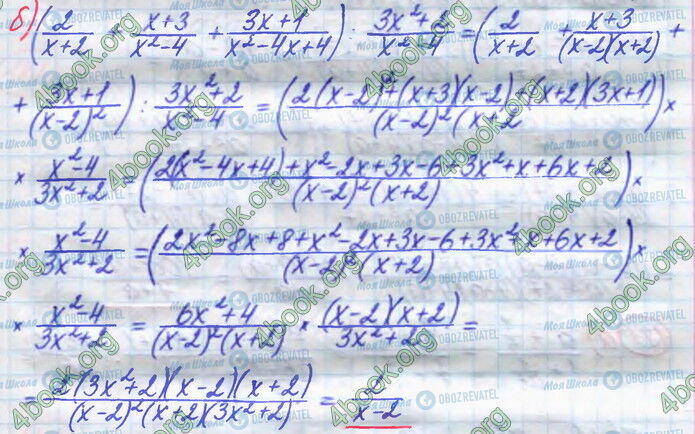 б) (2/(x+2) + (x+3)/(x²-4) + (3x+1)/(x²-4x+4)) : (3x²+2)/(x²-4) = (2/(x+2) + (x+3)/((x-2)(x+2)) +
+ (3x+1)/(x-2)²) : (3x²+2)/(x²-4) = ((2(x-2)²+(x+3)(x-2)+(x+2)(3x+1))/((x-2)²(x+2)) ×
× (x²-4)/(3x²+2) = ((2(x²-4x+4)+x²-2x+3x-6+3x²+x+6x+2)/((x-2)²(x+2))) ×
× (x²-4)/(3x²+2) = ((2x²-8x+8+x²-2x+3x-6+3x²+x+6x+2)/((x-2)²(x+2))) ×
× (x²-4)/(3x²+2) = (6x²+4)/((x-2)²(x+2)) × ((x-2)(x+2))/(3x²+2) =
= (2(3x²+2)(x-2)(x+2))/((x-2)²(x+2)(3x²+2)) = /(x-2)
4book.org
Моя Школа
OBOZREVATEL